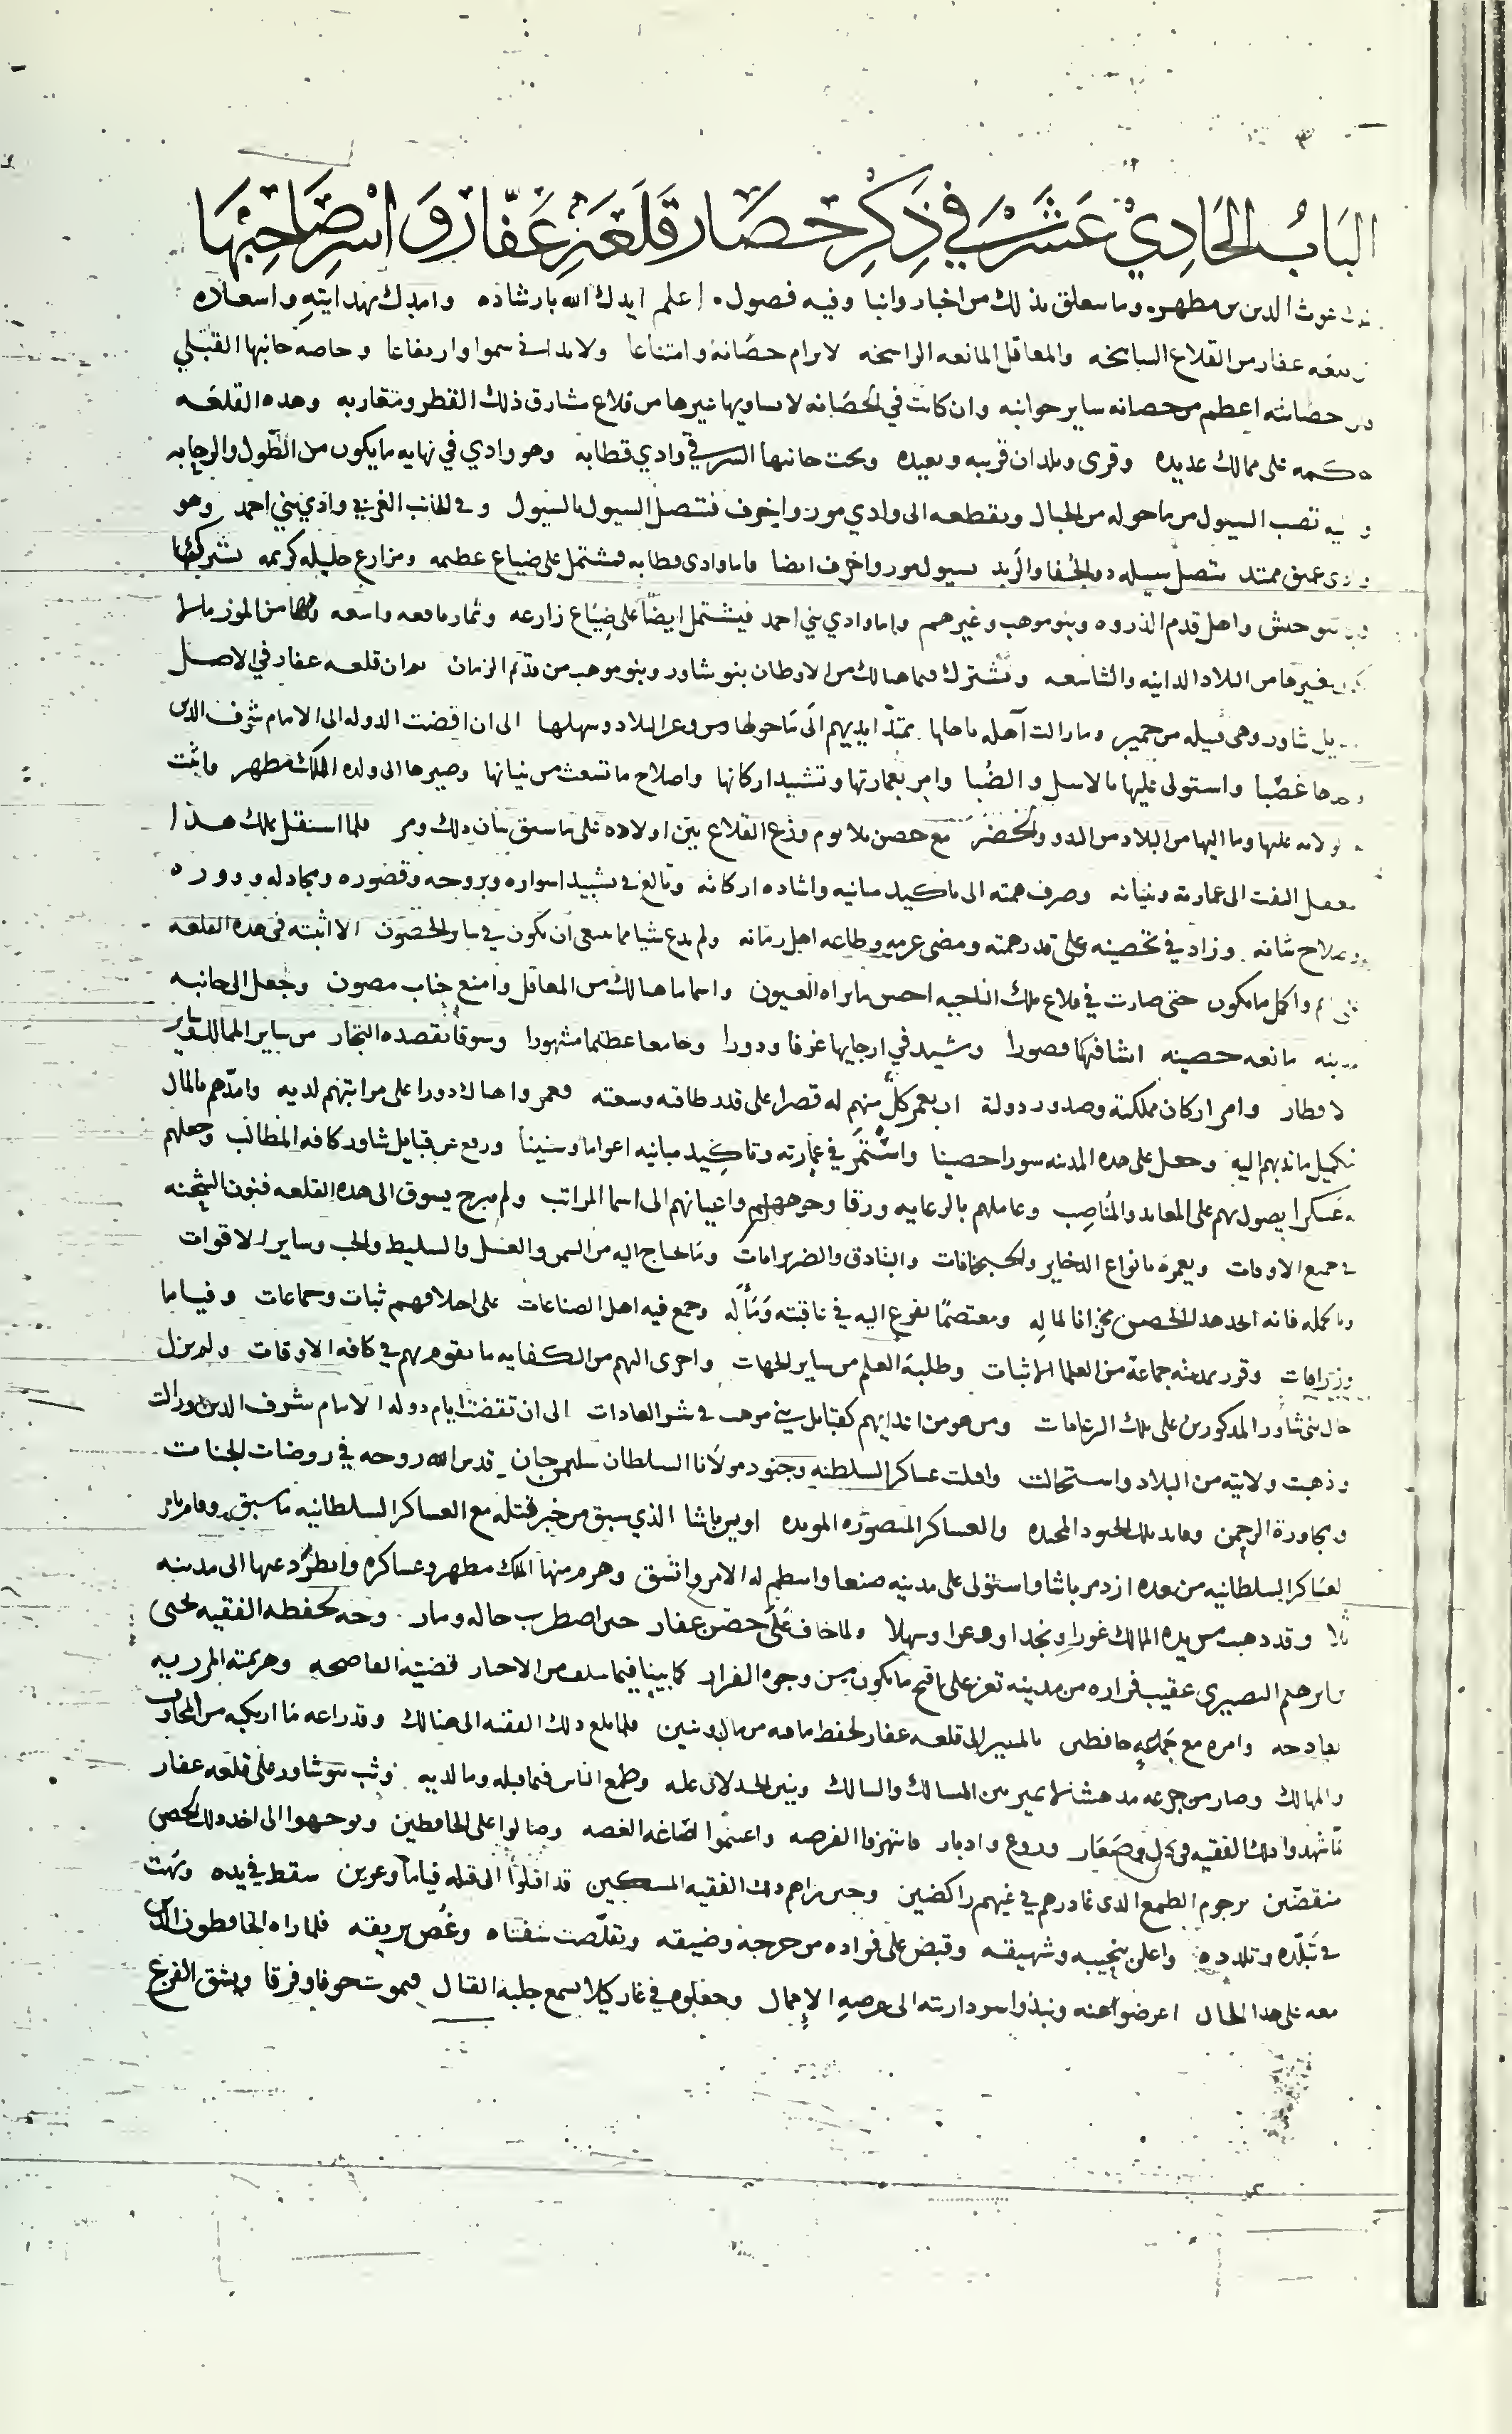 الباب الحادي عشر في ذكر حصار قلعة عفار واسر صاحبها
غوث الدين بن مطهر وما يتعلق بذلك من اخبار وانبا وفيه فصول اعلم ايدك الله بارشاده وامدك بهدايته واسعاده
عفار من القلاع الشامخه والمعاقل المانعه الراسخه لا ترام حصانة وامتناعا ولا تدانى سموا وارتفاعا وخاصه جانبها القبلي
حصانته اعظم من حصانه ساير جوانبه وان كانت في الحصانه لا يساويها غيرها من قلاع مشارق ذلك القطر ومغاربه وهذه القلعه
على ممالك عديده وقرى وبلدان قريبه وبعيده وتحت جانبها الشرقي وادي قطابه وهو وادي في نهايه ما يكون من الطول والرحابه
تصب السيول من ما حوله من الجبال ويقطعه الى وادي مور واخرف فتتصل السيول بالسيول وفي الجانب الغربي وادي بني احمد وهو
عميق ممتد يتصل سيله ذو الجفا والزبد بسيول مور واخرف ايضا واما وادي قطابه فيشتمل على ضياع عظيمه ومزارع جليله كريمه يشترك فيها
بنو حبش واهل قدم الذروه وبنو موهب وغيرهم واما وادي بني احمد فيشتمل ايضا على ضياع زارعه وثمار نافعه واسعه وبها من الموز ما لا
بغيرها من البلاد الدانيه والشاسعه ويشترك فيما هنالك من الاوطان بنو شاور وبنو موهب من قديم الزمان ثم ان قلعه عفار في الاصل
شاور وهي قبيله من حمير وما زالت آهله باهلها تمتد ايديهم الى ما حولها من وعر البلاد وسهلها الى ان افضت الدوله الى الامام شرف الدين
غصبا واستولى عليها بالاسل والظبا وامر بعمارتها وتشييد اركانها واصلاح ما تشعث من بنيانها وصيرها الى ولده الملك مطهر واثبت
عليها وما اليها من البلاد من البدو والحضر مع حصن ثلا يوم وزع القلاع بين اولاده على ما سبق بيان ذلك ومر فلما استقل بملك هذا
التفت الى عمارته وبنيانه وصرف همته الى تاكيد مبانيه واشاده اركانه وبالغ في تشييد اسواره وبروجه وقصوره ومجادله ودوره
شانه وزاد في تحصينه على قدر همته ومضي عزمه وطاعه اهل زمانه ولم يدع شيا مما ينبغي ان يكون في ساير الحصون الا اثبته في هذه القلعه
واكمل ما يكون حتى صارت في قلاع تلك الناحيه احسن ما تراه العيون واسما ما هنالك من المعاقل وامنع جناب مصون وجعل الى جانبه
مانعه حصينه انشا فيها قصورا وشيد في ارجايها غرفا ودورا وجامعا عظيما مشهورا وسوقا يقصده التجار من ساير الممالك
وامر اركان مملكته وصدور دولة ان يعمر كل منهم له قصرا على قدر طاقته وسعته فعمروا هنالك دورا على مراتبهم لديه وامدهم بالمال
ما ندبهم اليه وجعل على هذه المدينه سورا حصينا واستمر في عمارته وتاكيد مبانيه اعواما وسنينا ورفع عن قبايل شاور كافه المطالب وجعلهم
عسكرا يصول بهم على المعاند والمناصب وعاملهم بالرعايه ورقا وجوههم واعيانهم الى اسما المراتب ولم يبرح يسوق الى هذه القلعه فنون الشحنه
في جميع الاوقات ويعمره بانواع الذخاير والجبخانات والبنادق والضربزانات وما يحتاج اليه من السمن والعسل والسليط والحب وساير الاقوات
فانه اتخذ هذا الحصن مخزانا لماله ومعتصما يفزع اليه في عاقبته ومآله وجمع فيه اهل الصناعات على اختلافهم ثبات وجماعات
وقرر بمدينته جماعة من العلما الاثبات وطلبة العلم من ساير الجهات واجرى اليهم من الكفايه ما يقوم بهم في كافه الاوقات ولم يزل
حال بني شاور المذكورين على تلك الرعايات ومن هو من اندايهم كقبايل بني موهب في شر العادات الى ان تقضت ايام دوله الامام شرف الدين وزالت
وذهبت ولايته من البلاد واستحالت واقبلت عساكر السلطنه وجنود مولانا السلطان سليمن خان قدس الله روحه في روضات الجنات
ومجاورة الرحمن وقايد تلك الجنود المجنده والعساكر المنصوره المويده اويس باشا الذي سبق من خبر قتله مع العساكر السلطانيه ما سبق وقام بامر
العساكر السلطانيه من بعده ازدمر باشا واستولى على مدينه صنعا وانتظم له الامر واتسق وهزم منها الملك مطهر وعساكره وانطرد عنها الى مدينه
ثلا وقد ذهبت من يده الممالك غورا ونجدا ووعرا وسهلا ولما خاف على حصن عفار حين اضطرب حاله ومار وجه لحفظه الفقيه يحيى
بن ابرهيم النصيري عقيب فراره من مدينه تعز على اقبح ما يكون من وجوه الفرار كما بينا فيما سلف من الاخبار قضيته الفاضحه وهزيمته المزريه
القادحه وامره مع جماعه حافظين بالمسير الى قلعه عفار لحفظ ما فيه من مال وبنين فلما بلغ ذلك الفقيه الى هنالك وقد راعه ما ارتكبه من المخاوف
والمهالك وصار من جزعه مدهشا لا يميز بين المسالك والسالك وتبين الخذلان عليه وطمع الناس فيما قبله وما لديه وثب بنو شاور على قلعه عفار
لما شهدوا ذلك الفقيه في ذل وصغار وروع وادبار فانتهزوا الفرصه واغتنموا اضاعه الغصه وصالوا على الحافظين وتوجهوا الى اخذ ذلك الحصن
منقضين برجوم الطمع الذي غادرهم في غيهم راكضين وحين رآهم ذلك الفقيه المسكين قد اقبلوا الى قبله قياما وعزين سقط في يده وبهت
في تبلده وتلدده واعلن بنحيبه وشهيقه وقبض على فواده من حرجه وضيقه وتقلصت شفتاه وغص بريقه فلما راه الحافظون الذين
معه على هذا الحال اعرضوا عنه ونبذوا سو دارسته الى عرصه الاهمال وجعلوه في غار كيلا يسمع جلبة القتال فيموت خوفا وفرقا ويشق الفزع